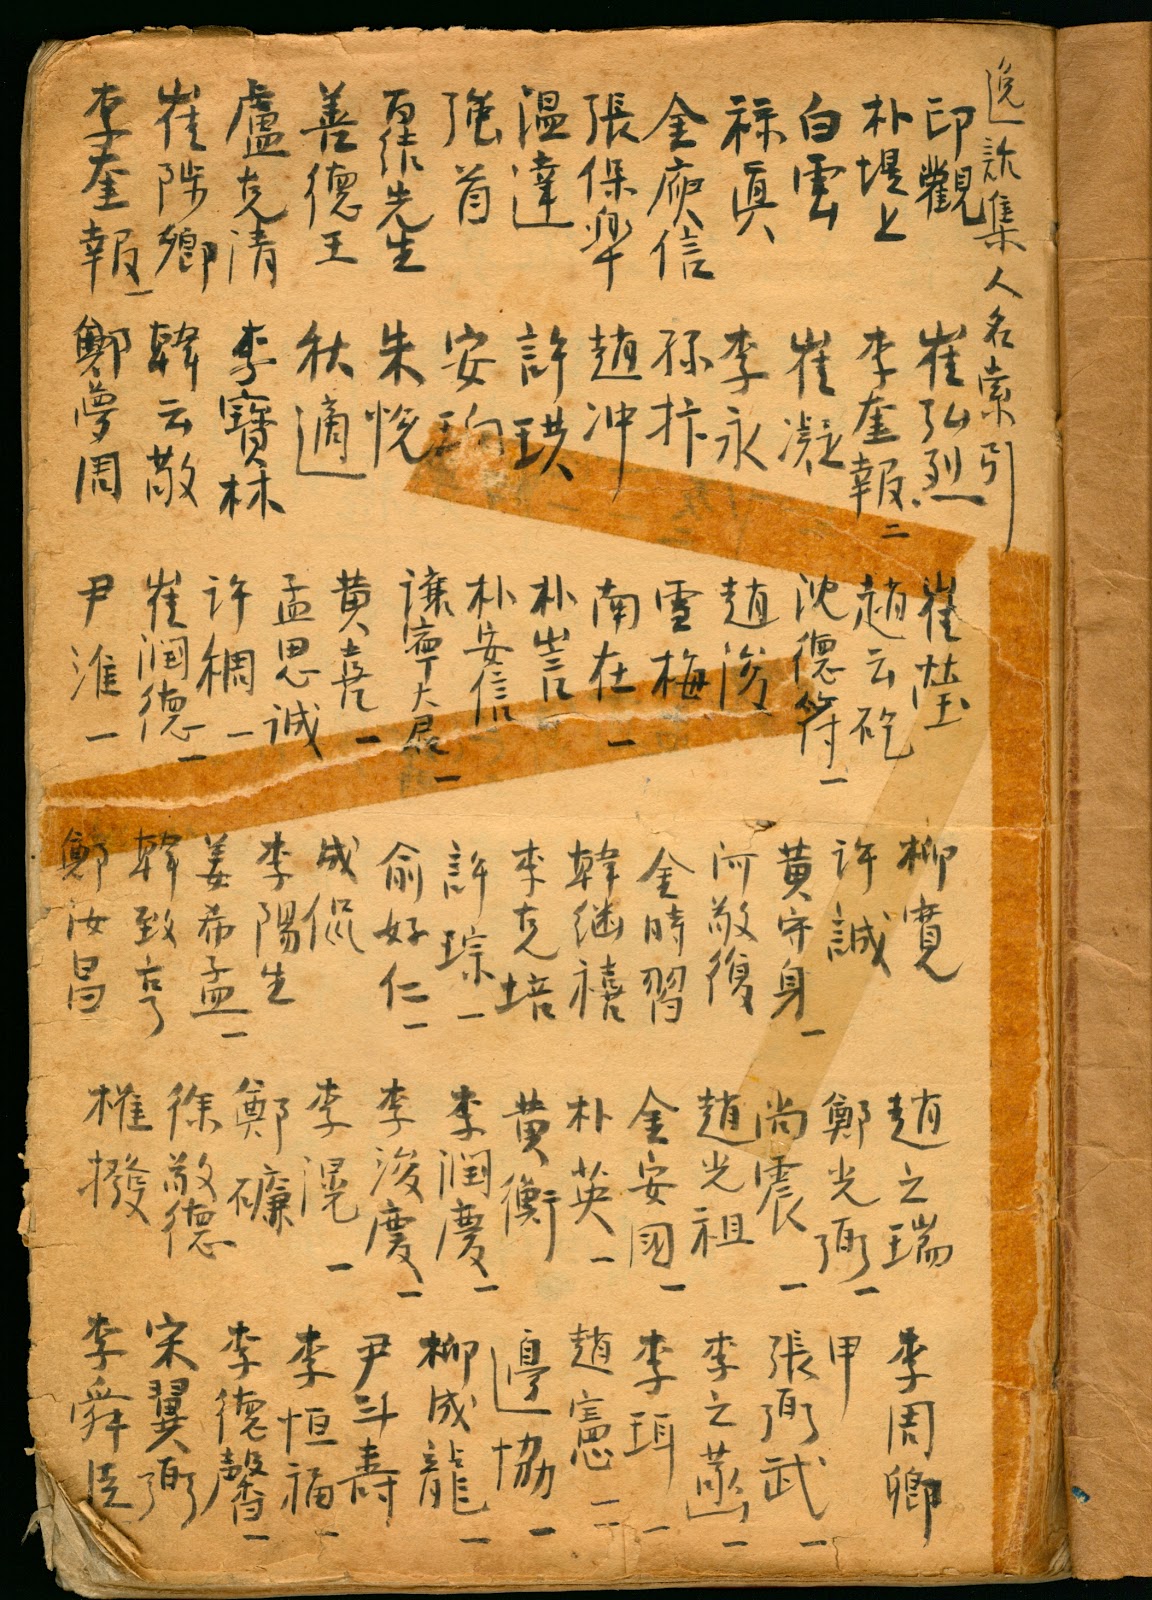 逸話集人名索引
印觀
朴堤上
白雲
祿眞
金庾信
張保皐
溫達
强首
百結先生
善德王
盧克清
崔陟卿
李奎報一
崔弘烈
李奎報二
崔凝
李永
孫抃
趙冲
許珙
安珦
朱悅
秋適
李寶林
韓云敬
鄭夢周
崔瑩
趙云仡
沈德符一
趙浚
雪梅
南在一
朴訔
朴安信
讓寧大君一
黃喜一
孟思誠
許稠一
崔潤德一
尹淮一
柳寬
許誠
黃守身一
河敬復
金時習
韓継禧
李克培
許琮一
俞好仁一
成侃
李陽生
姜希孟一
韓致亨
鄭汝昌
趙之瑞
鄭光弼一
尚震一
趙光祖
金安國一
朴英一
黃衡
李潤慶一
李浚慶一
李滉一
鄭磏
徐敬德
權撥
李周卿
甲
張弼武一
李之菡一
李珥一
趙憲二
邊協一
柳成龍一
尹斗壽
李恒福一
李德馨一
宋翼弼
李舜臣